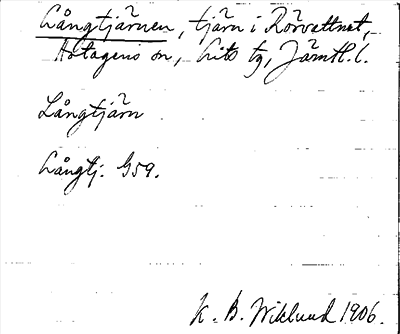 Långtjärnen, tjärn i Rörvattnet,
Hotagens sn, Lits tg, Jämtl. l.
Långtjärn
Långtj. G59.
K. B. Wiklund 1906.